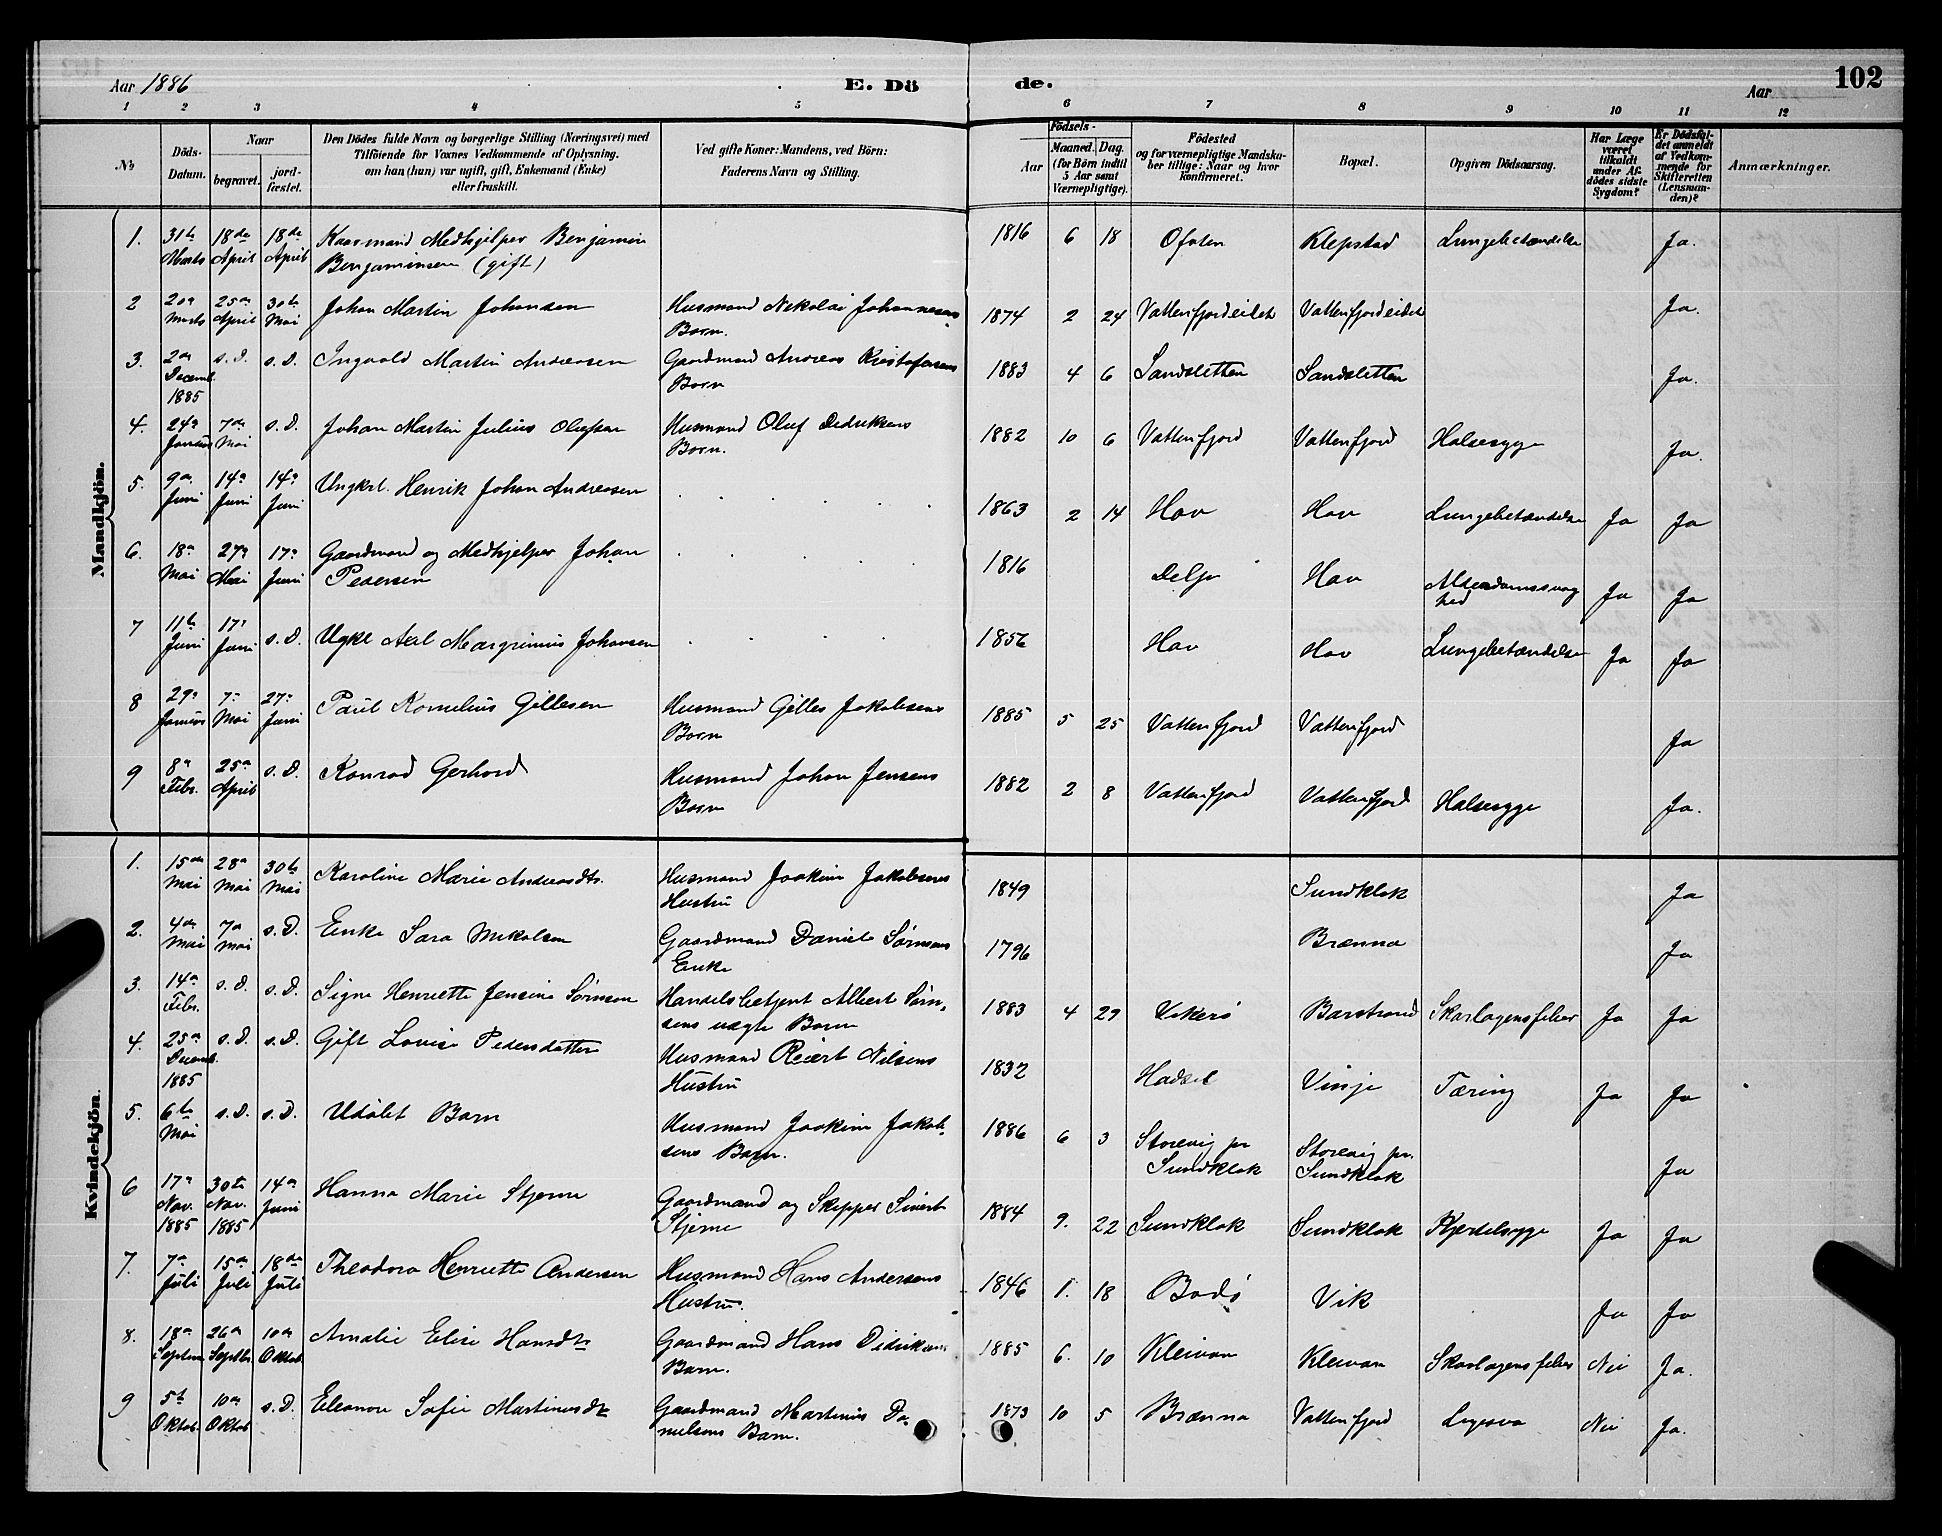 Aar 1886 E. Döde. Aar 102
1 2 3 4 5 6 7 8 9 10 11 12
№ Döds-Datum. Naar begravet. jordfæstet. Den Dödes fulde Navn og borgerlige Stilling (Næringsvei) med Tilföiende for Voxnes Vedkommende af Oplysning, om han (hun) var ugift, gift, Enkemand (Enke) eller fraskilt. Ved gifte Koner: Mandens, ved Börn: Faderens Navn og Stilling. Födsels- Aar Maaned. Dag. (for Börn indtil 5 Aar samt Værnepligtige). Födested og for værnepligtige Mandskaber tillige: Naar og hvor konfirmeret. Bopæl. Opgiven Dödsaarsag. Har Læge været tilkaldt under Afdödes sidste Sygdom? Er Dödsfaldet anmeldt af Vedkommende for Skifteretten (Lensmanden)? Anmærkninger.
Mandkjön.
1. 31te Marts 18de April 18de April Kaarmand Medhjelper Benjamin Benjaminsen (gift) 1816 6 18 Ofoten Klepstad Lungebetændelse Ja.
2 20de Marts 25de April 30te Mai Johan Martin Johansen Husmand Nikolai Johannesens Barn. 1874 2 24 Vattenfjordeidet Vattenfjordeidet Ja.
3. 2den Decemb. 1885 s.D. s.D. Ingvald Martin Andreasen Gaardmand Andreas Kristofersens Barn 1883 4 6 Sandsletten Sandsletten Ja.
4. 24de Januar 7de Mai s.D. Johan Martin Julius Olufsen Husmand Oluf Didriksens Barn. 1882 10 6 Vattenfjord Vattenfjord Halsesyge Ja.
5. 9de Juni 14de Juni 14de Juni Ungkrl. Henrik Johan Andreasen 1863 2 14 Hov Hov Lungebetændelse Ja Ja
6. 18de Mai 27de Mai 17de Juni Gaardmand og Medhjelper Johan Pedersen 1816 Delp Hov Alderdomssvaghed Ja Ja
7 11te Juni 17de Juni s.D. Ugkl Axel Margrinius Johansen 1856 Hov Hov Lungebetændelse Ja Ja
8 29de Januar 7de Mai 27de Juni Paul Kornelius Gillesen Husmand Gilles Jakobsens Barn 1885 5 25 Vattenfjord Vattenfjord Ja
9 8de Febr. 25de April s.D. Konrad Gerhard Husmand Johan Jensens Barn 1882 2 8 Vattenfjord Vattenfjord Halsesyge Ja.
Kvindekjön.
1. 15de Mai 28de Mai 30te Mai Karoline Marie Andreasdtr. Husmand Joakim Jakobsens Hustru 1849 Sundklak Ja
2. 4de Mai 7de Mai s.D. Enke Sara Mikalsen Gaardmand Daniel Sörnsens Enke 1796 Brænna Ja
3. 14de Febr. s.D. s.D. Signe Henriette Jensine Sörnsen Handelsbetjent Albert Sörnsens uægte Barn 1883 4 29 Vikerö Barstrand Skarlagensfeber Ja Ja
4. 25de Decemb. 1885 s.D. s.D. Gift Lovise Pedersdatter Husmand Reiert Nilsens Hustru 1832 Hadsel Vinje Tæring Ja Ja
5. 6te Mai s.D. s.D. Udöbt Barn Husmand Joakim Jakobsens Barn. 1886 6 3 Storevig pr Sundklak Storevig pr. Sundklak Ja
6 17de Nov. 1885 30te Nov. 1885 14de Juni Hanna Marie Stjerne Gaardmand og Skipper Sivert Stjerne 1884 9. 22 Sundklak Sundklak Kjertelsyge Ja Ja
7. 7de Juli 15de Juli 18de Juli Theodora Henriette Andersen Husmand Hans Andersens Hustru. 1846 1. 18 Bodö Vik Ja Ja
8. 18de Septem 26de Septbr. 10de Oktob. Amalie Elise Hansdtr Gaardmand Hans Didriksens Barn. 1885 6. 10 Kleivan Kleivan Skarlagensfeber Nei Ja.
9 5te Oktob. 10de Oktob s.D. Eleonore Sofie Martinusdtr Gaardmand Martinus Danielsens Barn. 1873 10 5 Brænna Vattenfjord Nei Ja.